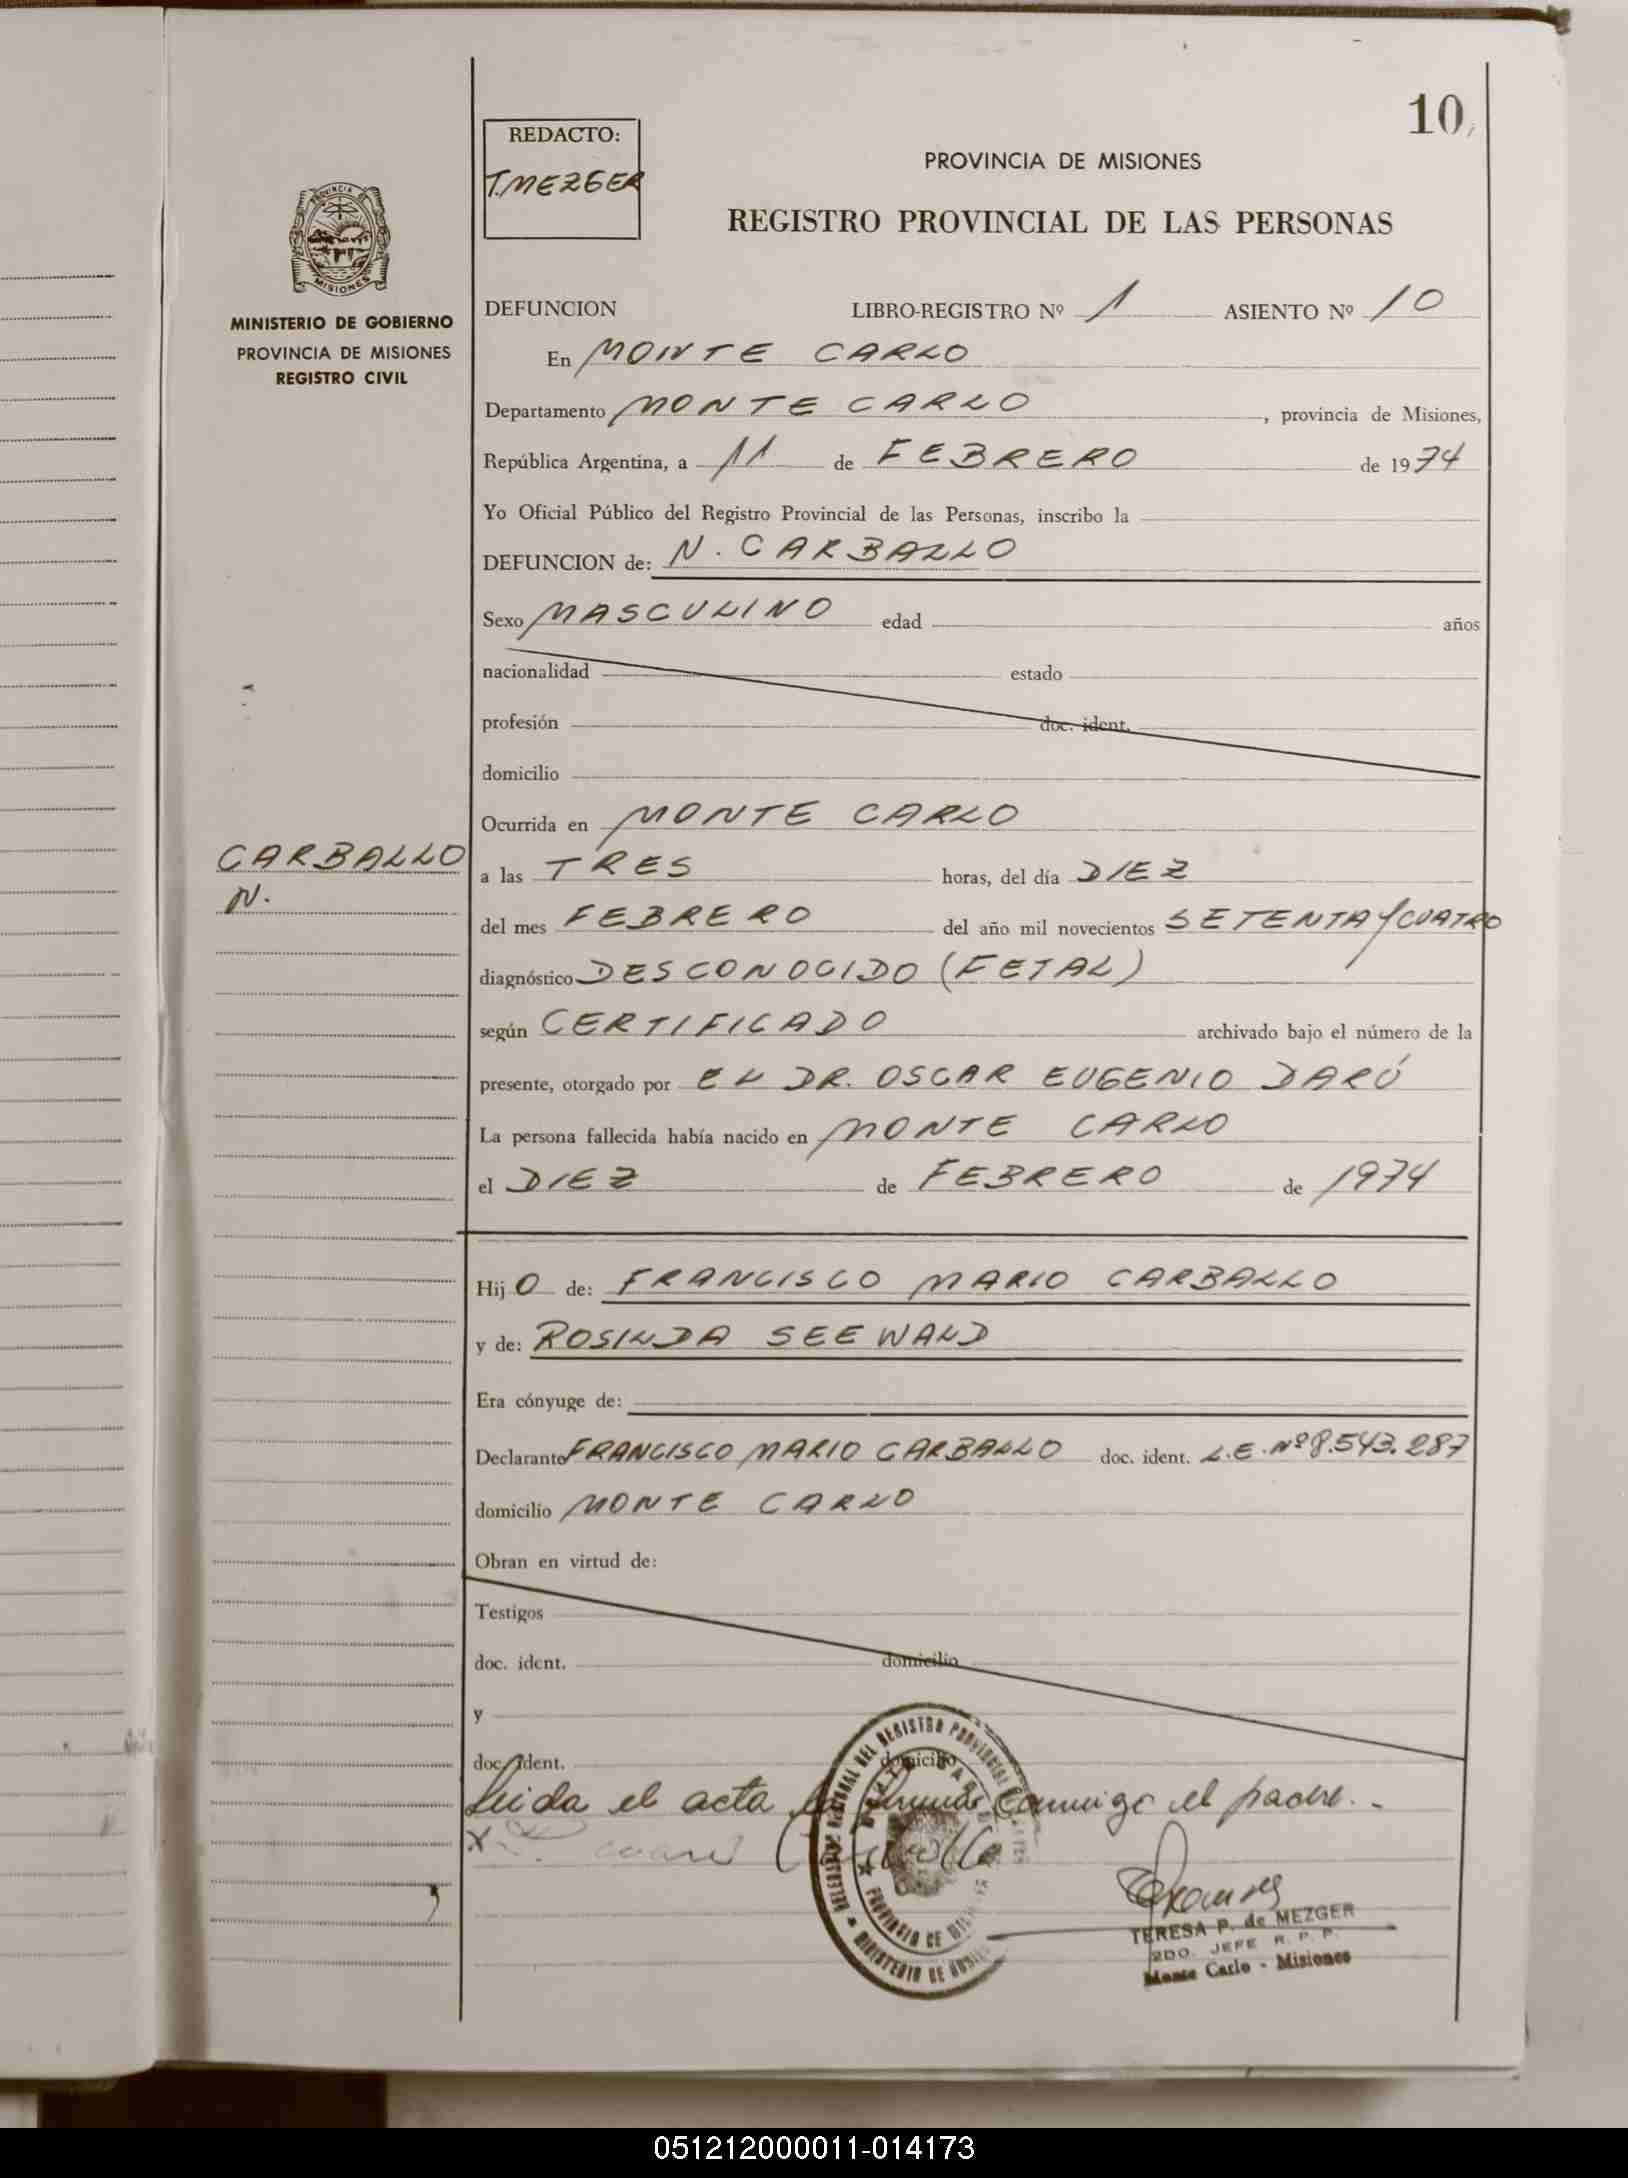 10
REDACTO:
T. MEZGER
PROVINCIA DE MISIONES
REGISTRO PROVINCIAL DE LAS PERSONAS
PROVINCIA
MISIONES
MINISTERIO DE GOBIERNO
PROVINCIA DE MISIONES
REGISTRO CIVIL
DEFUNCION LIBRO-REGISTRO Nº 1 ASIENTO Nº 10
En MONTE CARLO
Departamento MONTE CARLO, provincia de Misiones,
República Argentina, a 11 de FEBRERO de 1974
Yo Oficial Público del Registro Provincial de las Personas, inscribo la
DEFUNCION de: N. CARBALLO
Sexo MASCULINO edad años
nacionalidad estado
profesión doc. ident.
domicilio
Ocurrida en MONTE CARLO
CARBALLO
N.
a las TRES horas, del día DIEZ
del mes FEBRERO del año mil novecientos SETENTA Y CUATRO
diagnóstico DESCONOCIDO (FETAL)
según CERTIFICADO archivado bajo el número de la
presente, otorgado por EL DR. OSCAR EUGENIO DARÚ
La persona fallecida había nacido en MONTE CARLO
el DIEZ de FEBRERO de 1974
Hij O de: FRANCISCO MARIO CARBALLO
y de: ROSILDA SEEWALD
Era cónyuge de:
Declarante FRANCISCO MARIO CARBALLO doc. ident. L.E. Nº 8.543.287
domicilio MONTE CARLO
Obran en virtud de:
Testigos
doc. ident. domicilio
y
doc. ident. domicilio
Leida el acta la firma conmigo el padre.-
x Carballo
TERESA P. de MEZGER
2DO. JEFE R. P. P.
Monte Carlo - Misiones
051212000011-014173